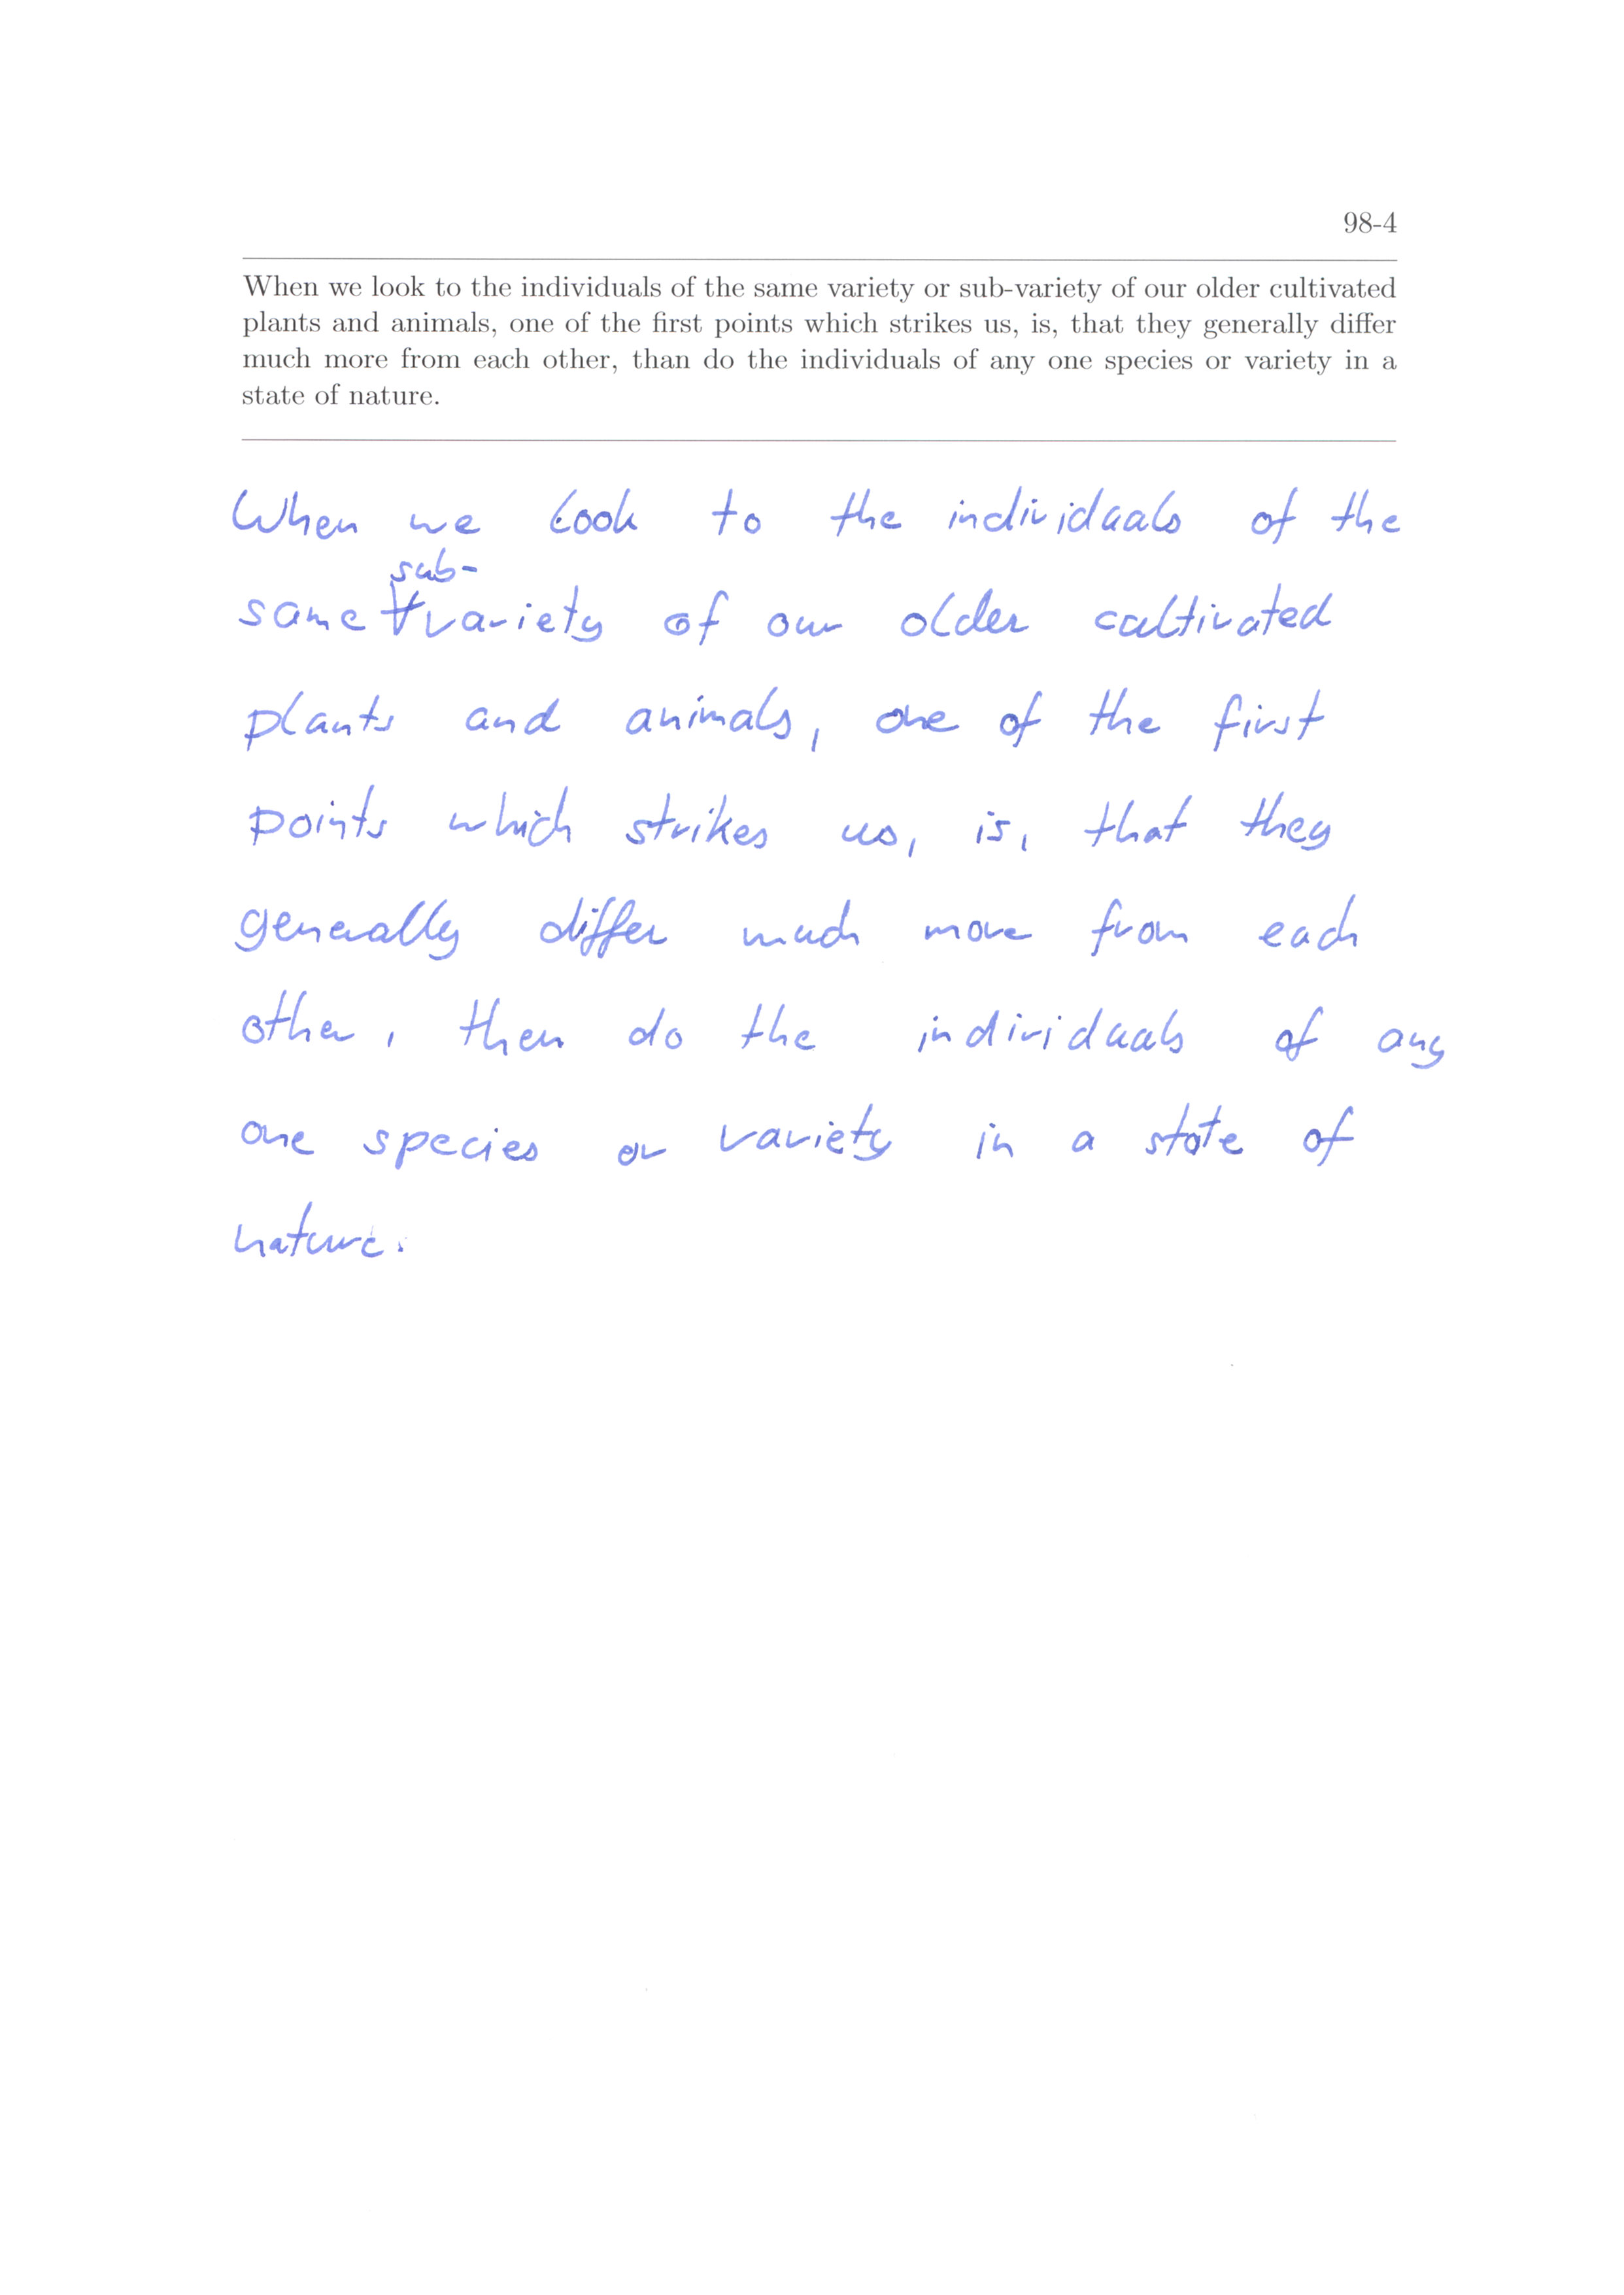 98-4
When we look to the individuals of the same variety or sub-variety of our older cultivated
plants and animals, one of the first points which strikes us, is, that they generally differ
much more from each other, than do the individuals of any one species or variety in a
state of nature.
When we look to the individuals of the
sub-
same variety of our older cultivated
plants and animals, one of the first
points which strikes us, is, that they
generally differ much more from each
other, then do the individuals of any
one species or variety in a state of
nature.